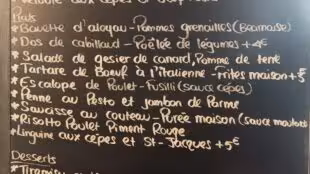 Velouté aux cèpes
Plats
* Bavette d'aloyau - Pommes grenailles (Bearnaise)
* Dos de cabillaud - Poêlée de légumes + 4€
* Salade de gesier de canard, Pomme de terre
* Tartare de Boeuf à l'italienne - frites maison + 5€
* Escalope de Poulet - Fusilli (sauce cèpes)
* Penne au Pesto et jambon de Parme
* Saucisse au couteau - Purée maison (sauce moutarde
* Risotto Poulet Piment Rouge
* Linguine aux cèpes et St-Jacques + 5€
Desserts
* Tiramisu